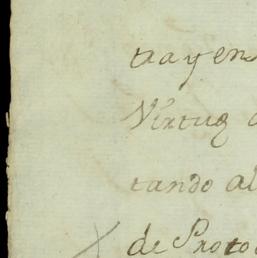 trayen
Virtud
tando al
de Proto